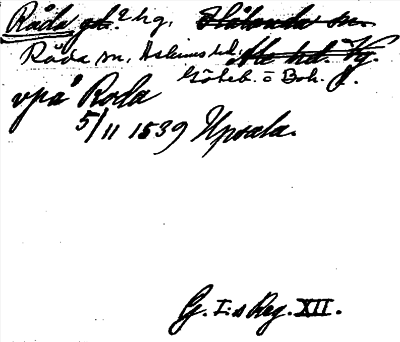 Råda gd. 2 hg. Hålanda sn.
Råda sn, Askims hd. Ale hd. Vg.
Göteb. o Boh. l.
vpå Roda
5/11 1539 Upsala.
G. I:s Reg. XII.